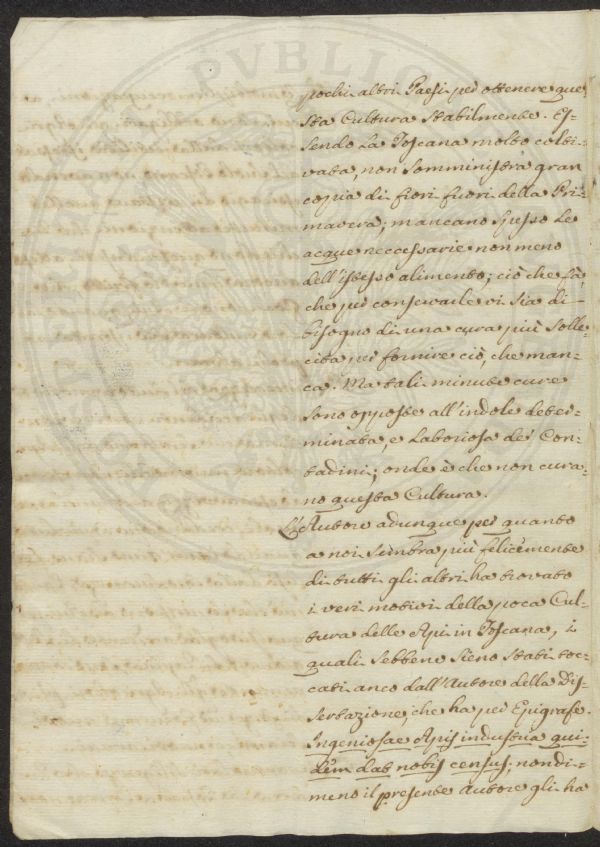 pochi altri Paesi per ottenere que
sta Cultura stabilmente. Es-
sendo la Toscana molto colti-
vata, non somministra gran
copia di fiori fuori della Pri-
mavera; mancano spesso le
acque neccessarie non meno
dell'istesso alimento; ciò che fà,
che per conservarle vi sia di
bisogno di una cura più solle-
cita per fornire ciò, che man-
ca. Ma tali minute cure
sono opposte all'indole deter-
minata, e laboriosa dei Con-
tadini; onde è che non cura-
no questa Cultura.
L'Autore adunque per quanto
a noi sembra più felicemente
di tutti gli altri ha trovato
i veri motivi della poca Cul-
tura delle Api in Toscana, i
quali sebbene sieno stati toc-
cati anco dall'Autore della Dis-
sertazione, che ha per Epigrafe.
Ingeniosae Apis industria qui-
dem dat nobis census; nondi-
meno il presente Autore gli ha
PVBLIC